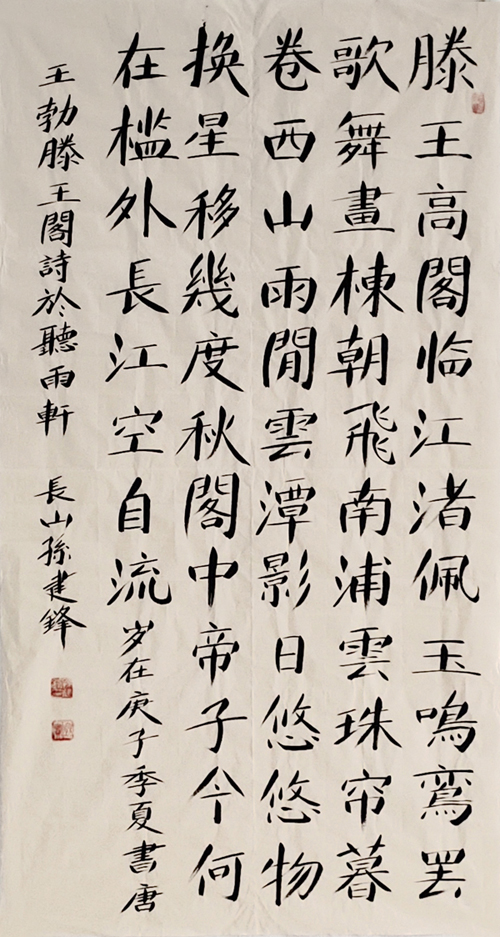 滕王高閣临江渚佩玉鳴鸾罢
歌舞畫棟朝飛南浦雲珠帘暮
卷西山雨閒雲潭影日悠悠物
换星移幾度秋閣中帝子今何
在檻外長江空自流岁在庚子季夏書唐
王勃滕王閣詩於聽雨軒 長山孫建鋒